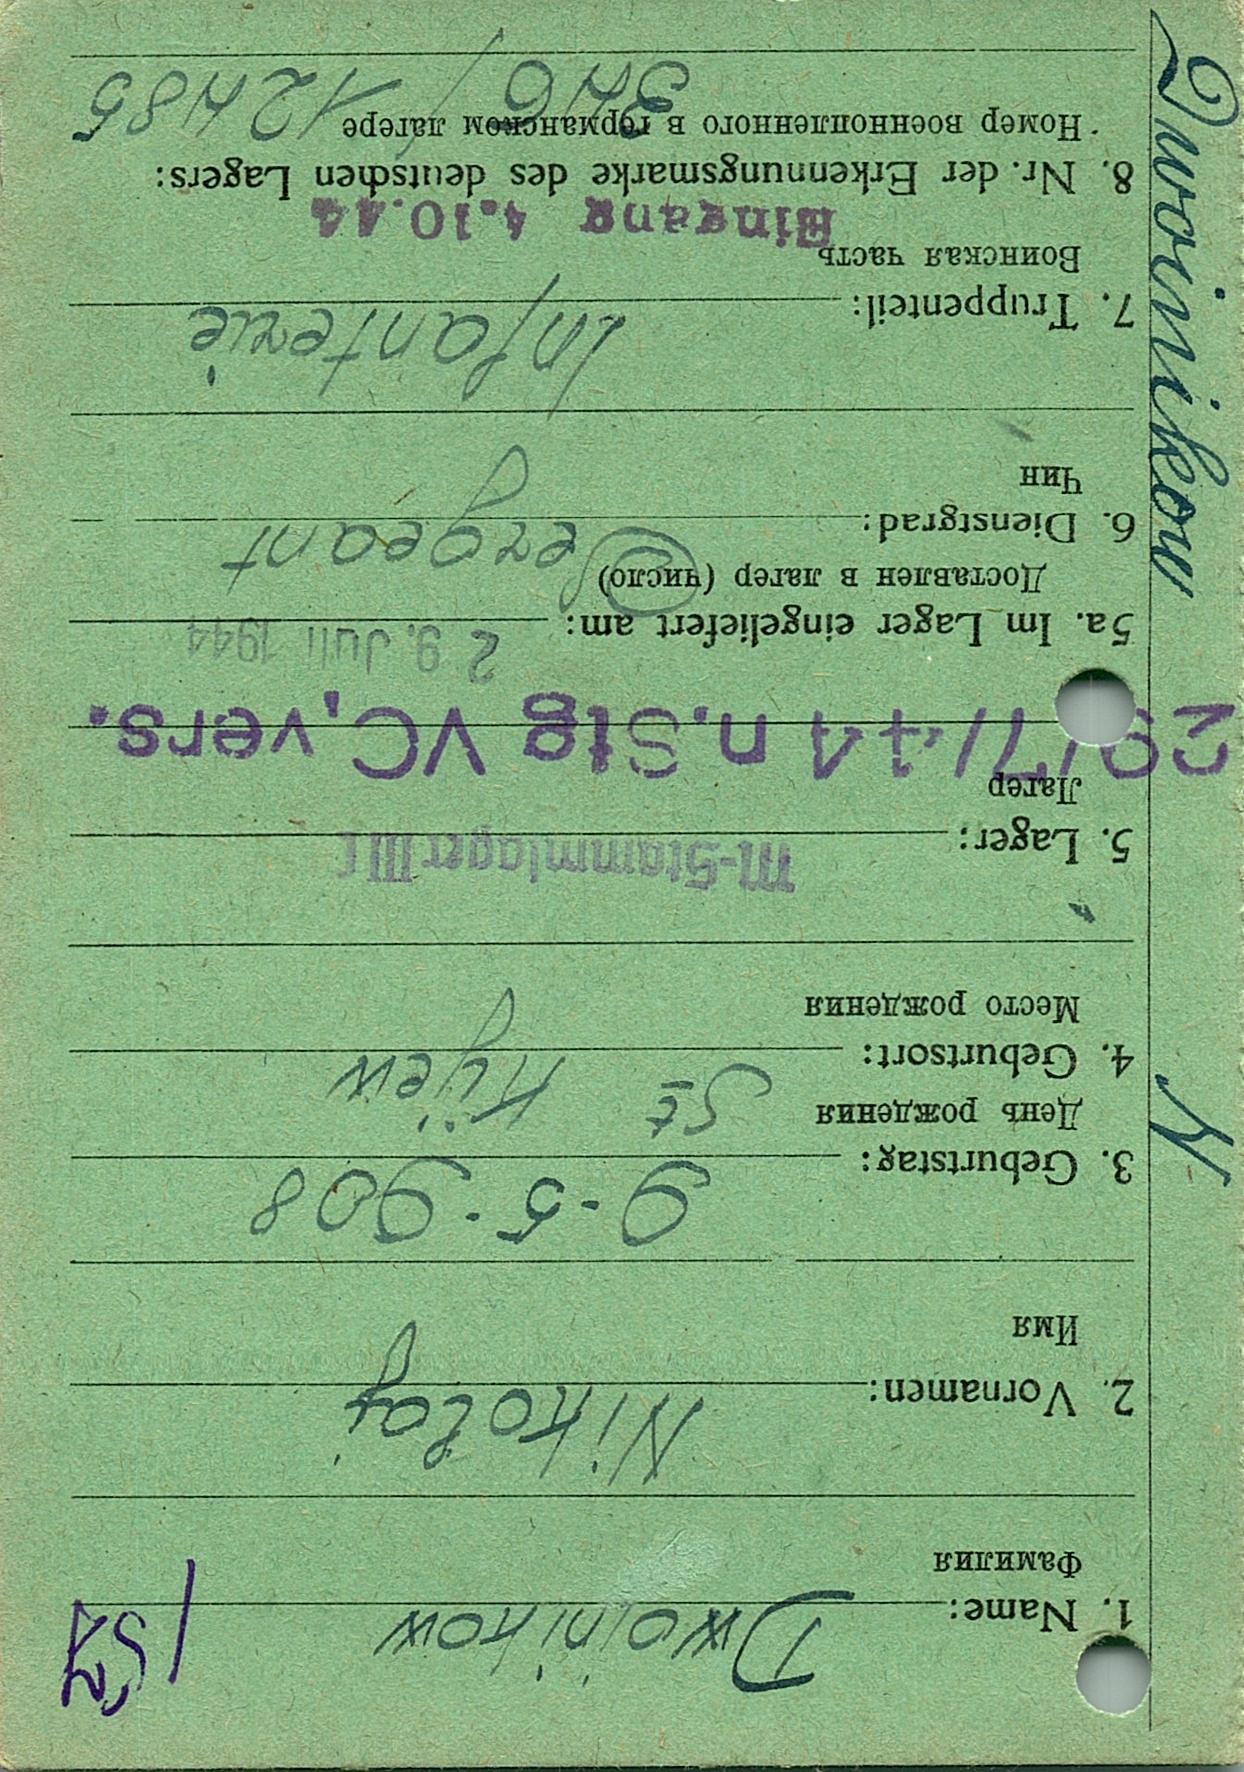 1. Name: Dwojnikow
Фамилия
2. Vornamen: Nikolaj
Имя
3. Geburtstag: 9-5-908
День рождения
4. Geburtsort: St Kÿew
Место рождения
5. Lager: M-Stammlager III C
Лагер
29/7/44 n.Stg VC, vers.
5a. Im Lager eingeliefert am: 29. Juli 1944
Доставлен в лагер (число)
6. Dienstgrad: Sergeant
Чин
7. Truppenteil: Infanterie
Воинская часть
Eingang 4.10.44
8. Nr. der Erkennungsmarke des deutschen Lagers:
Номер военнопленного в германском лагере 346 / 12485
Dwoinikow N